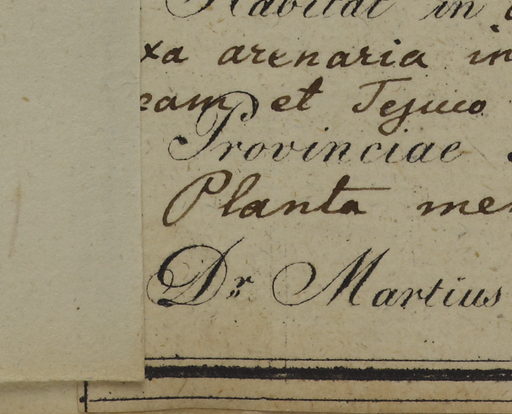 Habitat in
xa arenaria in
eam et Tejuco
Provinciae
Planta men
Dr Martius